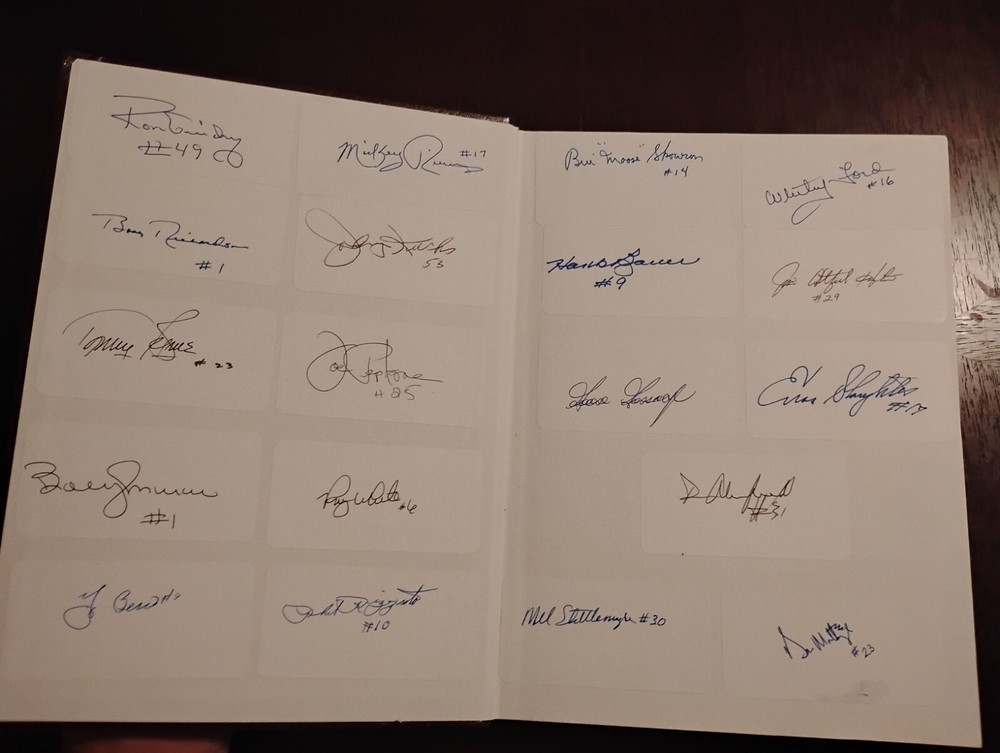 Ron Guidry
#49
Mickey Rivers #17
Bobby Richardson
#1
Johnny Kucks
53
Tommy
#23
Joe Pepitone
#25
Bobby Murcer
#1
Roy White #6
Y Berra #8
Phil Rizzuto
#10
Bill "Moose" Skowron
#14
Whitey Ford
#16
Hank Bauer
#9
Jim Catfish Hunter
#29
Goose Gossage
Enos Slaughter
#17
D
#31
Mel Stottlemyre #30
Don Mattingly
#23